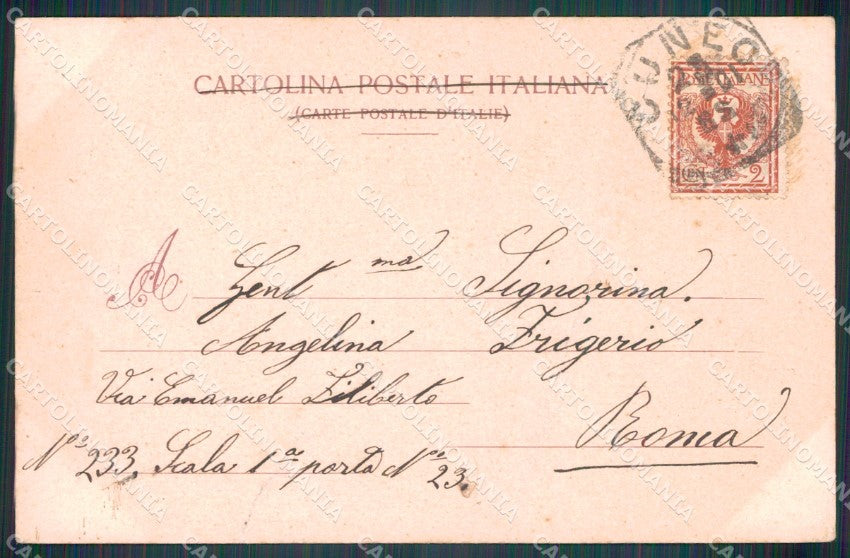 CARTOLINA POSTALE ITALIANA
(CARTE POSTALE D'ITALIE)
CUNEO
POSTE ITALIANE
CENT. 2
A
Gent ma Signorina.
Angelina Frigerio
Via Emanuel Filiberto
Roma
No. 233. Scala 1a porta No. 23.
CARTOLINOMANIA